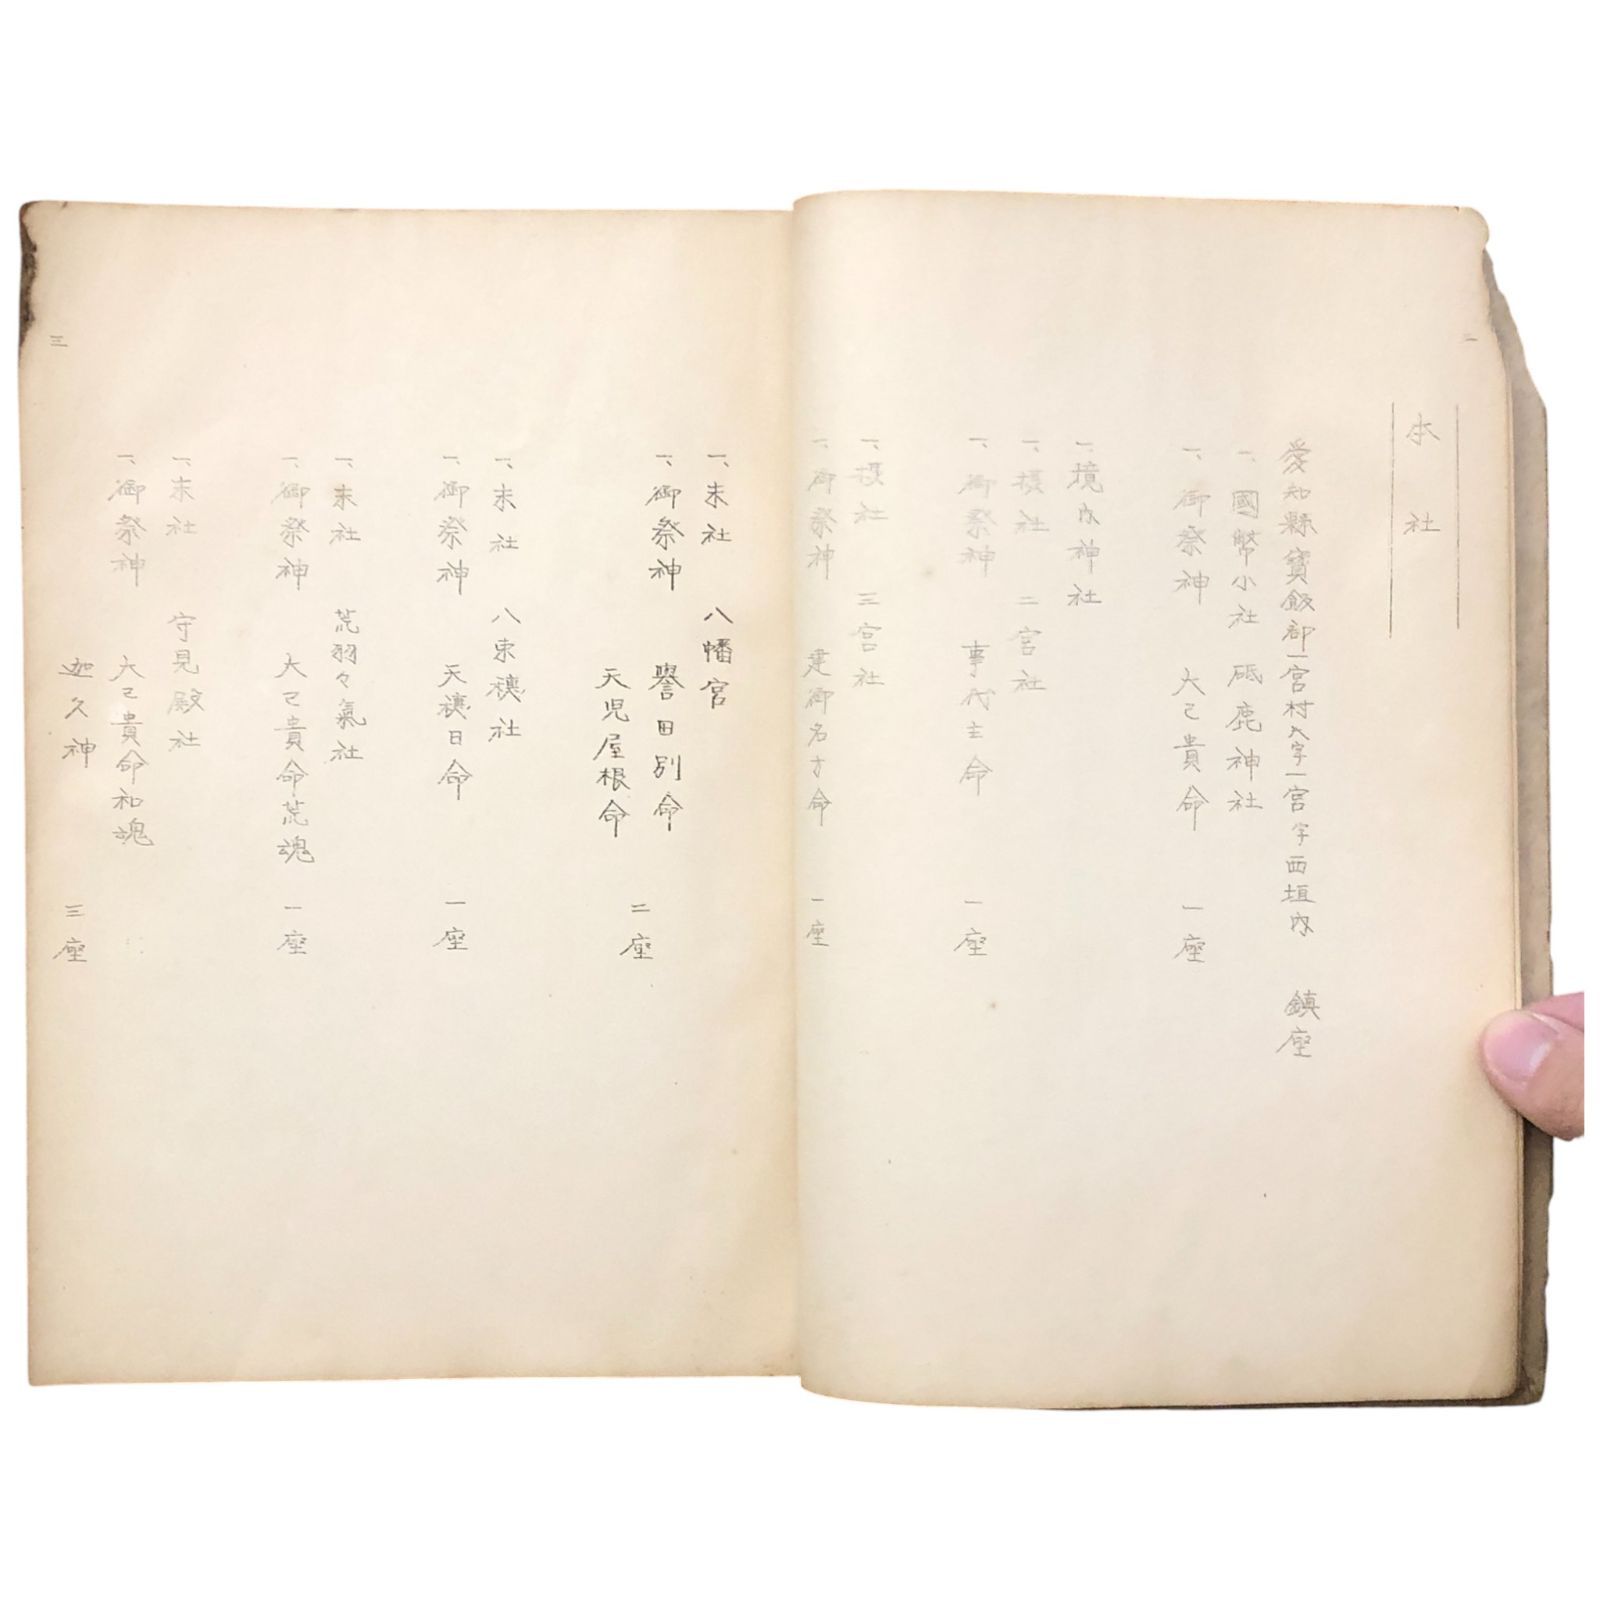 二
本社
愛知縣寶飯郡一宮村大字一宮字西垣内　鎮座
一、國幣小社　砥鹿神社
一、御祭神　大己貴命　一座
一、境内神社
一、摂社　二宮社
一、御祭神　事代主命　一座
一、摂社　三宮社
一、御祭神　建御名方命　一座
三
一、末社　八幡宮
一、御祭神　譽田別命
天児屋根命　二座
一、末社　八束穂社
一、御祭神　天穂日命　一座
一、末社　荒羽々氣社
一、御祭神　大己貴命荒魂　一座
一、末社　守見殿社
一、御祭神　大己貴命和魂
迦久神　三座